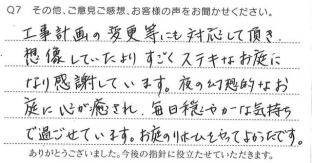 Q7 その他、ご意見ご感想、お客様の声をお聞かせください。
工事計画の変更等にも対応して頂き、
想像していたよりすごくステキなお庭に
なり感謝しています。夜の幻想的なお
庭に心が癒され、毎日穏やかな気持ち
で過ごせています。お庭のリホームをやってよかったです。
ありがとうございました。今後の指針に役立たせていただきます。